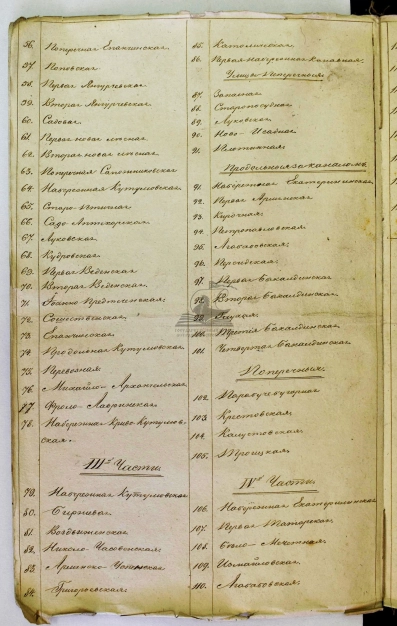 56. Поперечная Епанчинская.
57 Поповская
58. Первая Ямгурчевская
59. Вторая Ямгурчевская
60. Садовая.
61. Первая новая лѣсная
62. Вторая новая лѣсная
63. Поперечная Сапожниковская
64. Набережная Кутумовская
65. Старо-Птичная
66. Садо-Аптекарская
67. Луковская
68. Кидровская
69. Первая Веденская
70. Вторая Веденская.
71. Іоанно Предтеченская:
72. Сошественская:
73. Епанчинская
74 Продольная Кутумовская
75. Перевозная.
76. Михайло-Архангельская
77 Фроло-Лавринская
78. Набережно-Криво-Кутумов-
ская.
IIIя Часть
79. Набережная Кутумовская
80. Биржевая
81. Воздвиженская
82. Николо-Часовенская
83. Армянско-Успенская
84. Григорьевская:
85. Католическая
86. Первая Набережная Канавная:
Улицы Поперечныя
87. Запасная
88. Старопосудная
89. Луковская
90. Ново-Исадная
91. Плотничная
Продольныя за каналомъ
91. Набережная Екатерининская
92. Первая Армянская
93. Кирочная.
94. Петропавловская
95. Агабабовская.
96. Персидская
97. Первая Бакалдинская
98. Вторая Бакалдинская.
99.
100. Третія Бакалдинская.
101. Четвертая Бакалдинская
Поперечныя
102. Паробичебугорная
103. Крестовская
104. Капустовская
105. Троицкая
IVя Часть
106. Набережная Екатерининская
107. Первая Татарская
108. Бѣло-Мечетная
109. Исмайловская
110. Агабабовская.